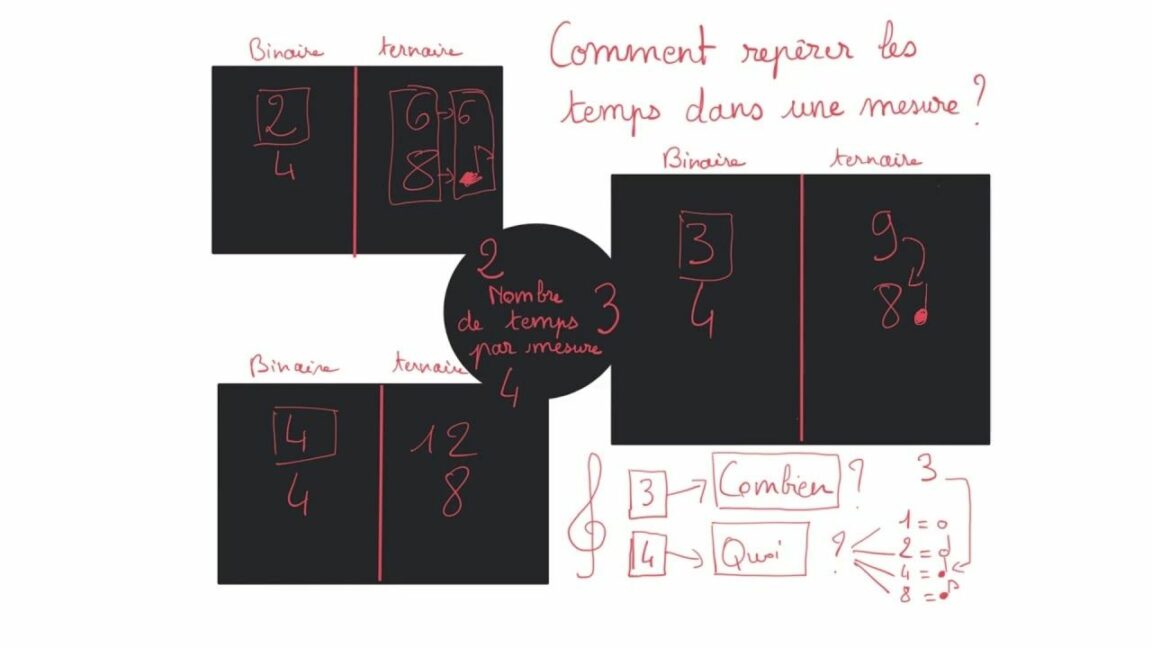 Comment repérer les
temps dans une mesure ?
Binaire ternaire
2
4
6 6
8
2
Nombre
de temps 3
par mesure
4
Binaire ternaire
3
4
9
8
Binaire ternaire
4
4
12
8
3 Combien ?
4 Quoi ?
3
1 =
2 =
4 =
8 =